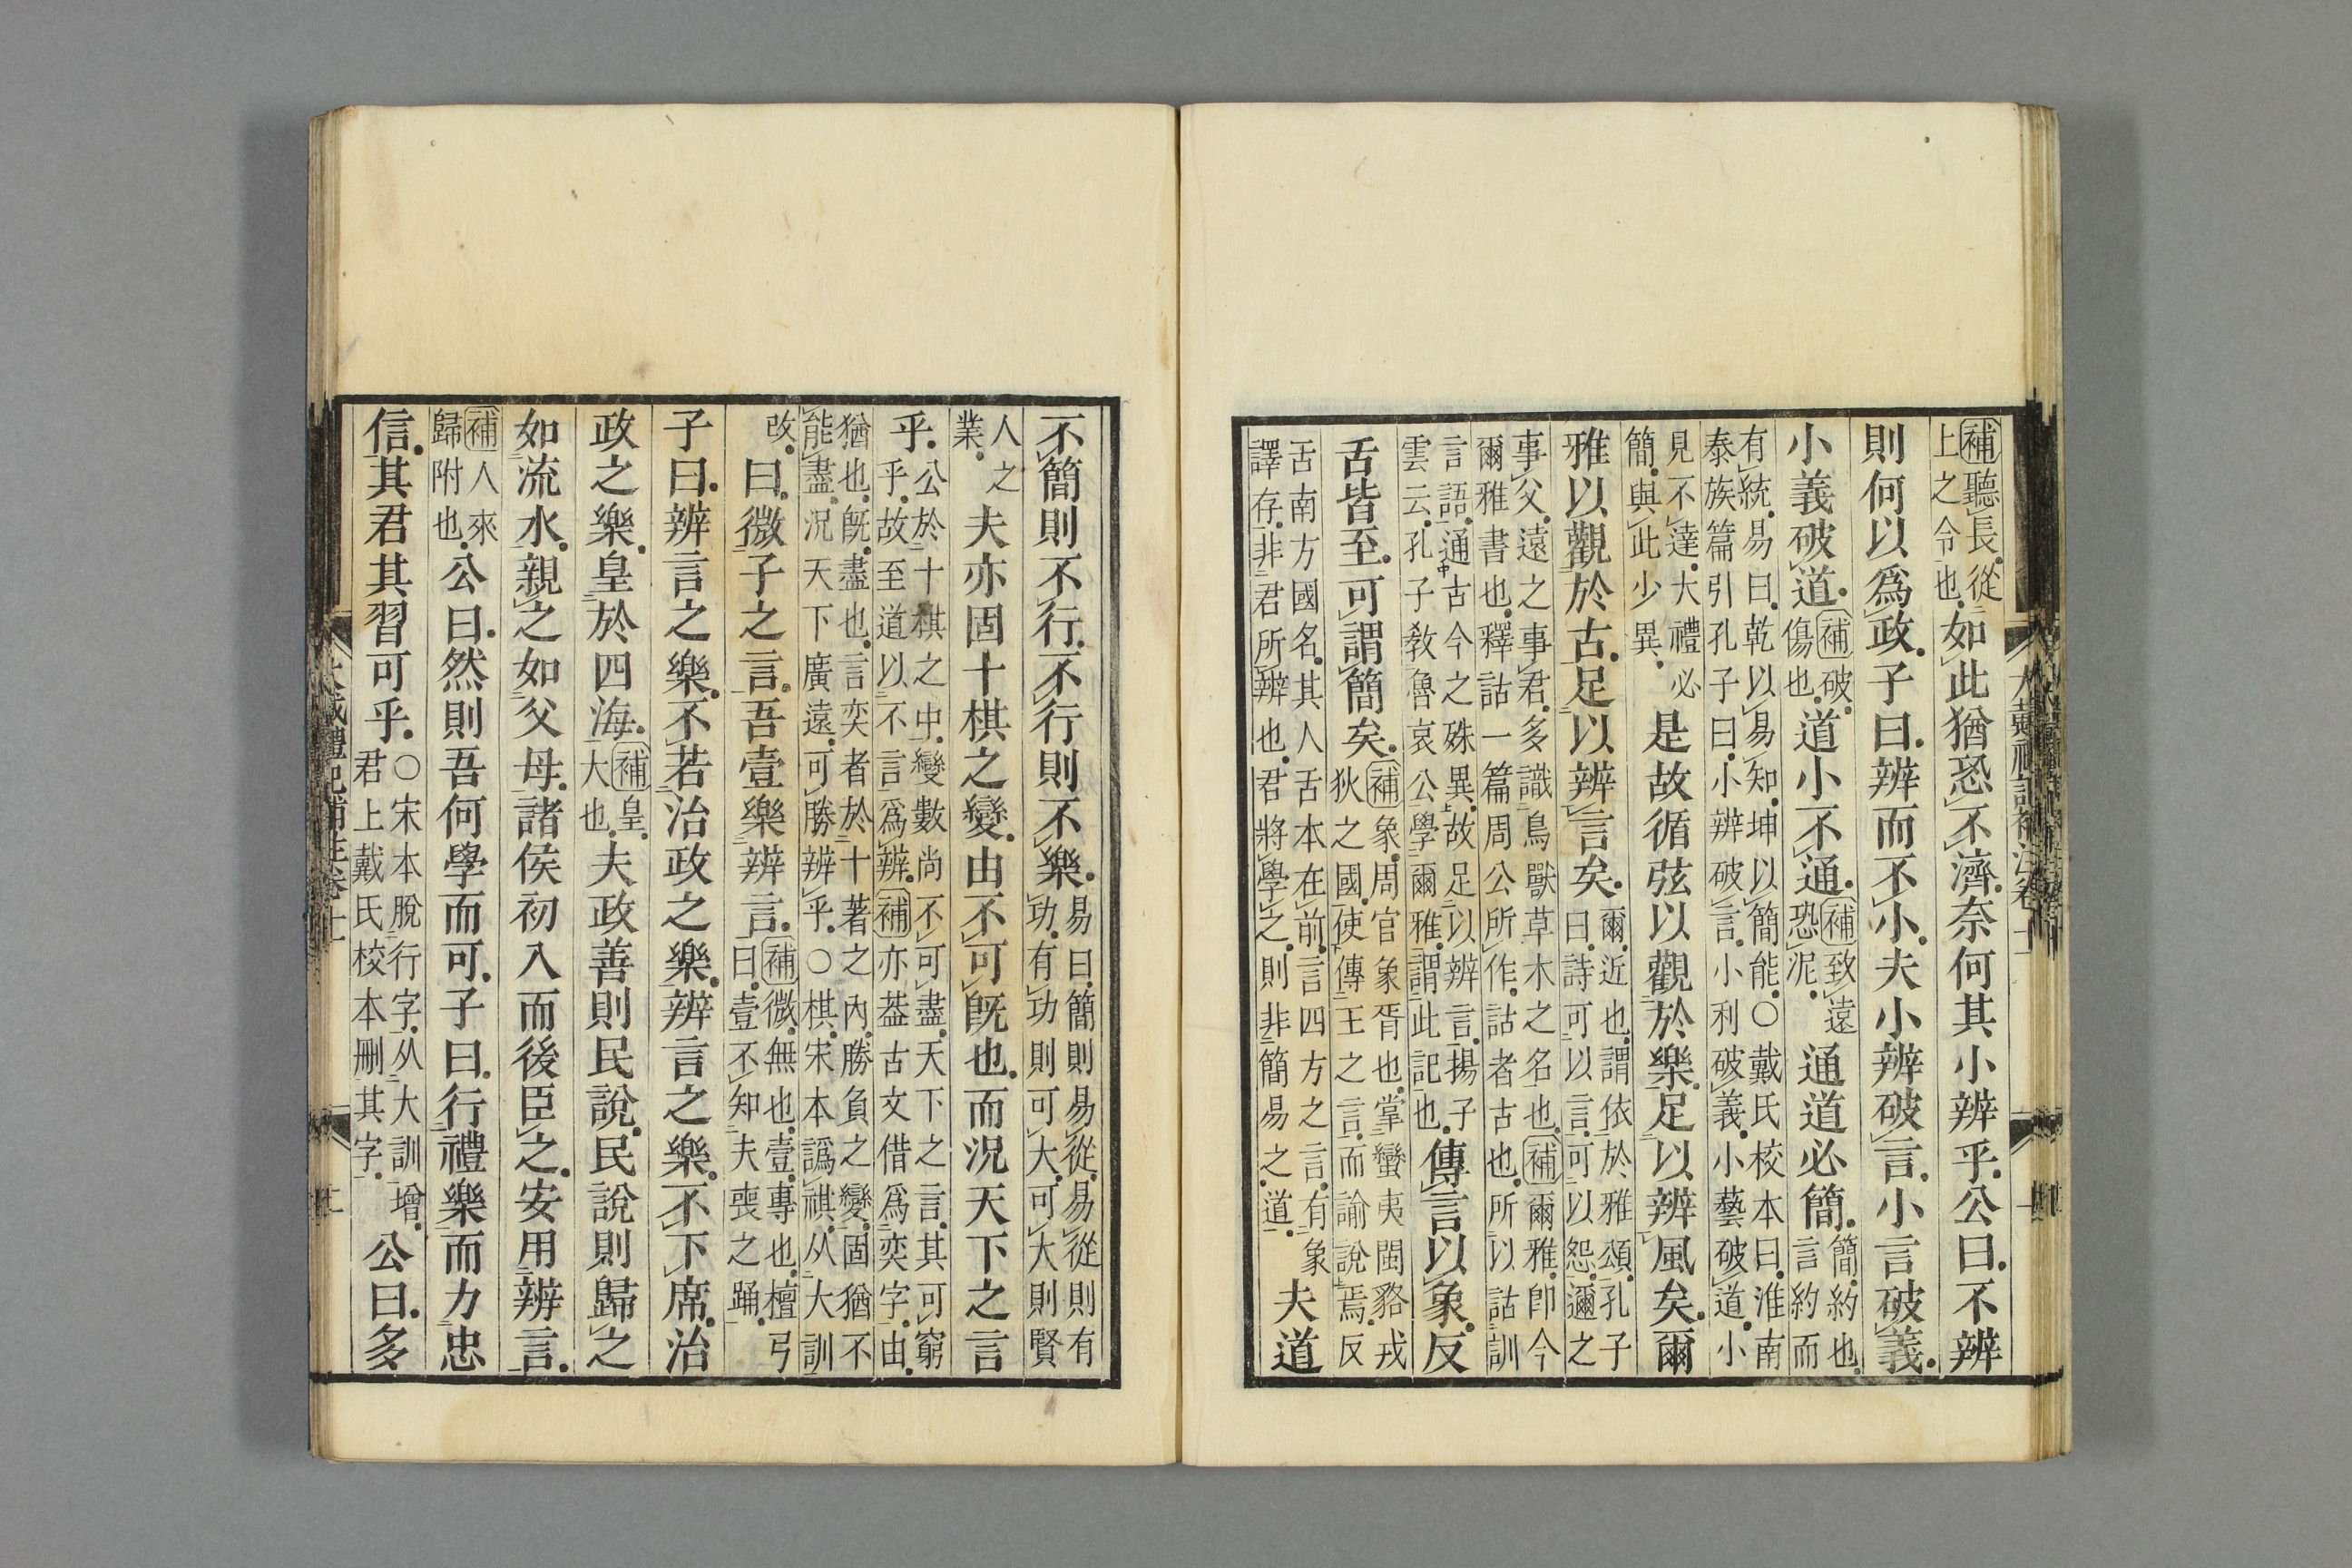 補聽長從上之令也。如此猶恐不濟。奈何其小辨乎。公曰。不辨
則何以爲政。子曰。辨而不小。夫小辨破言。小言破義。
小義破道。補破。傷也。道小不通。補致遠恐泥。通道必簡。簡。約也。言約而
有統。易曰。乾以易知。坤以簡能。○戴氏校本曰。淮南
泰族篇引孔子曰。小辨破言。小利破義。小藝破道。小
見不達。大禮必簡。與此少異。是故循弦以觀於樂。足以辨風矣。爾
雅以觀於古。足以辨言矣。爾。近也。謂依於雅頌。孔子曰。詩可以言。可以怨。邇之
事父。遠之事君。多識鳥獸草木之名也。補爾雅。卽今
爾雅書也。釋詁一篇周公所作。詁者古也。所以詁訓
言語。通古今之殊異。故足以辨言。揚子雲云。孔子敎魯哀公學爾雅。謂此記也。傳言以象。反
舌皆至。可謂簡矣。補象。周官象胥也。掌蠻夷閩貉戎狄之國。使傳王之言。而諭說焉。反
舌南方國名。其人舌本在前。言四方之言。有象譯存。非君所辨也。君將學之。則非簡易之道。夫道
大戴禮記補注卷十一
不簡則不行。不行則不樂。易曰。簡則易從。易從則有功。有功則可大。可大則賢
人之業。夫亦固十棋之變。由不可旣也。而況天下之言
乎。公於十棋之中。變數尚不可盡。天下之言。其可窮乎。故至道以不言爲辨。補亦葢古文借爲奕字。由。
猶也。旣。盡也。言奕者於十著之內。勝負之變。固猶不
能盡。況天下廣遠。可勝辨乎。○棋。宋本譌祺。从大訓
改。曰。微子之言。吾壹樂辨言。補微。無也。壹。專也。檀弓曰。壹不知夫喪之踊。
子曰。辨言之樂。不若治政之樂。辨言之樂。不下席。治
政之樂。皇於四海。補皇。大也。夫政善則民說。民說則歸之
如流水。親之如父母。諸侯初入而後臣之。安用辨言。
補人來歸附也。公曰。然則吾何學而可。子曰。行禮樂而力忠
信。其君其習可乎。○宋本脫行字。从大訓增。君上戴氏校本刪其字。公曰。多
大戴禮記補注卷十一
二